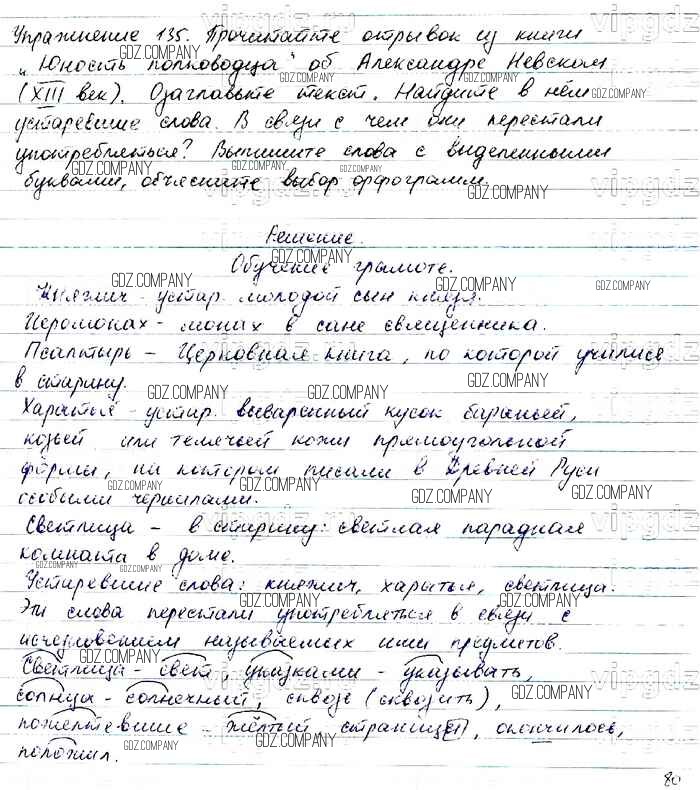 Упражнение 135. Прочитайте отрывок из книги
„Юность полководца" об Александре Невском
(XIII век). Озаглавьте текст. Найдите в нём
устаревшие слова. В связи с чем они перестали
употребляться? Выпишите слова с выделенными
буквами, объясните выбор орфограмм.
Решение.
Обучение грамоте.
Княжич - устар. молодой сын князя.
Иеромонах - монах в сане священника.
Псалтырь - Церковная книга, по которой учились
в старину.
Харатья - устар. вываренный кусок бараньей,
козьей или телячьей кожи прямоугольной
формы, на котором писали в Древней Руси
особыми чернилами.
Светлица - в старину: светлая парадная
комната в доме.
Устаревшие слова: княжич, харатья, светлица.
Эти слова перестали употребляться в связи с
исчезновением называемых ими предметов.
Светлица - свет, указками - указывать,
солнца - солнечный, сквозь (сквозить),
пожелтевшие - жёлтый, страницы, окончилось,
положил.
80
GDZ.COMPANY
vipgdz